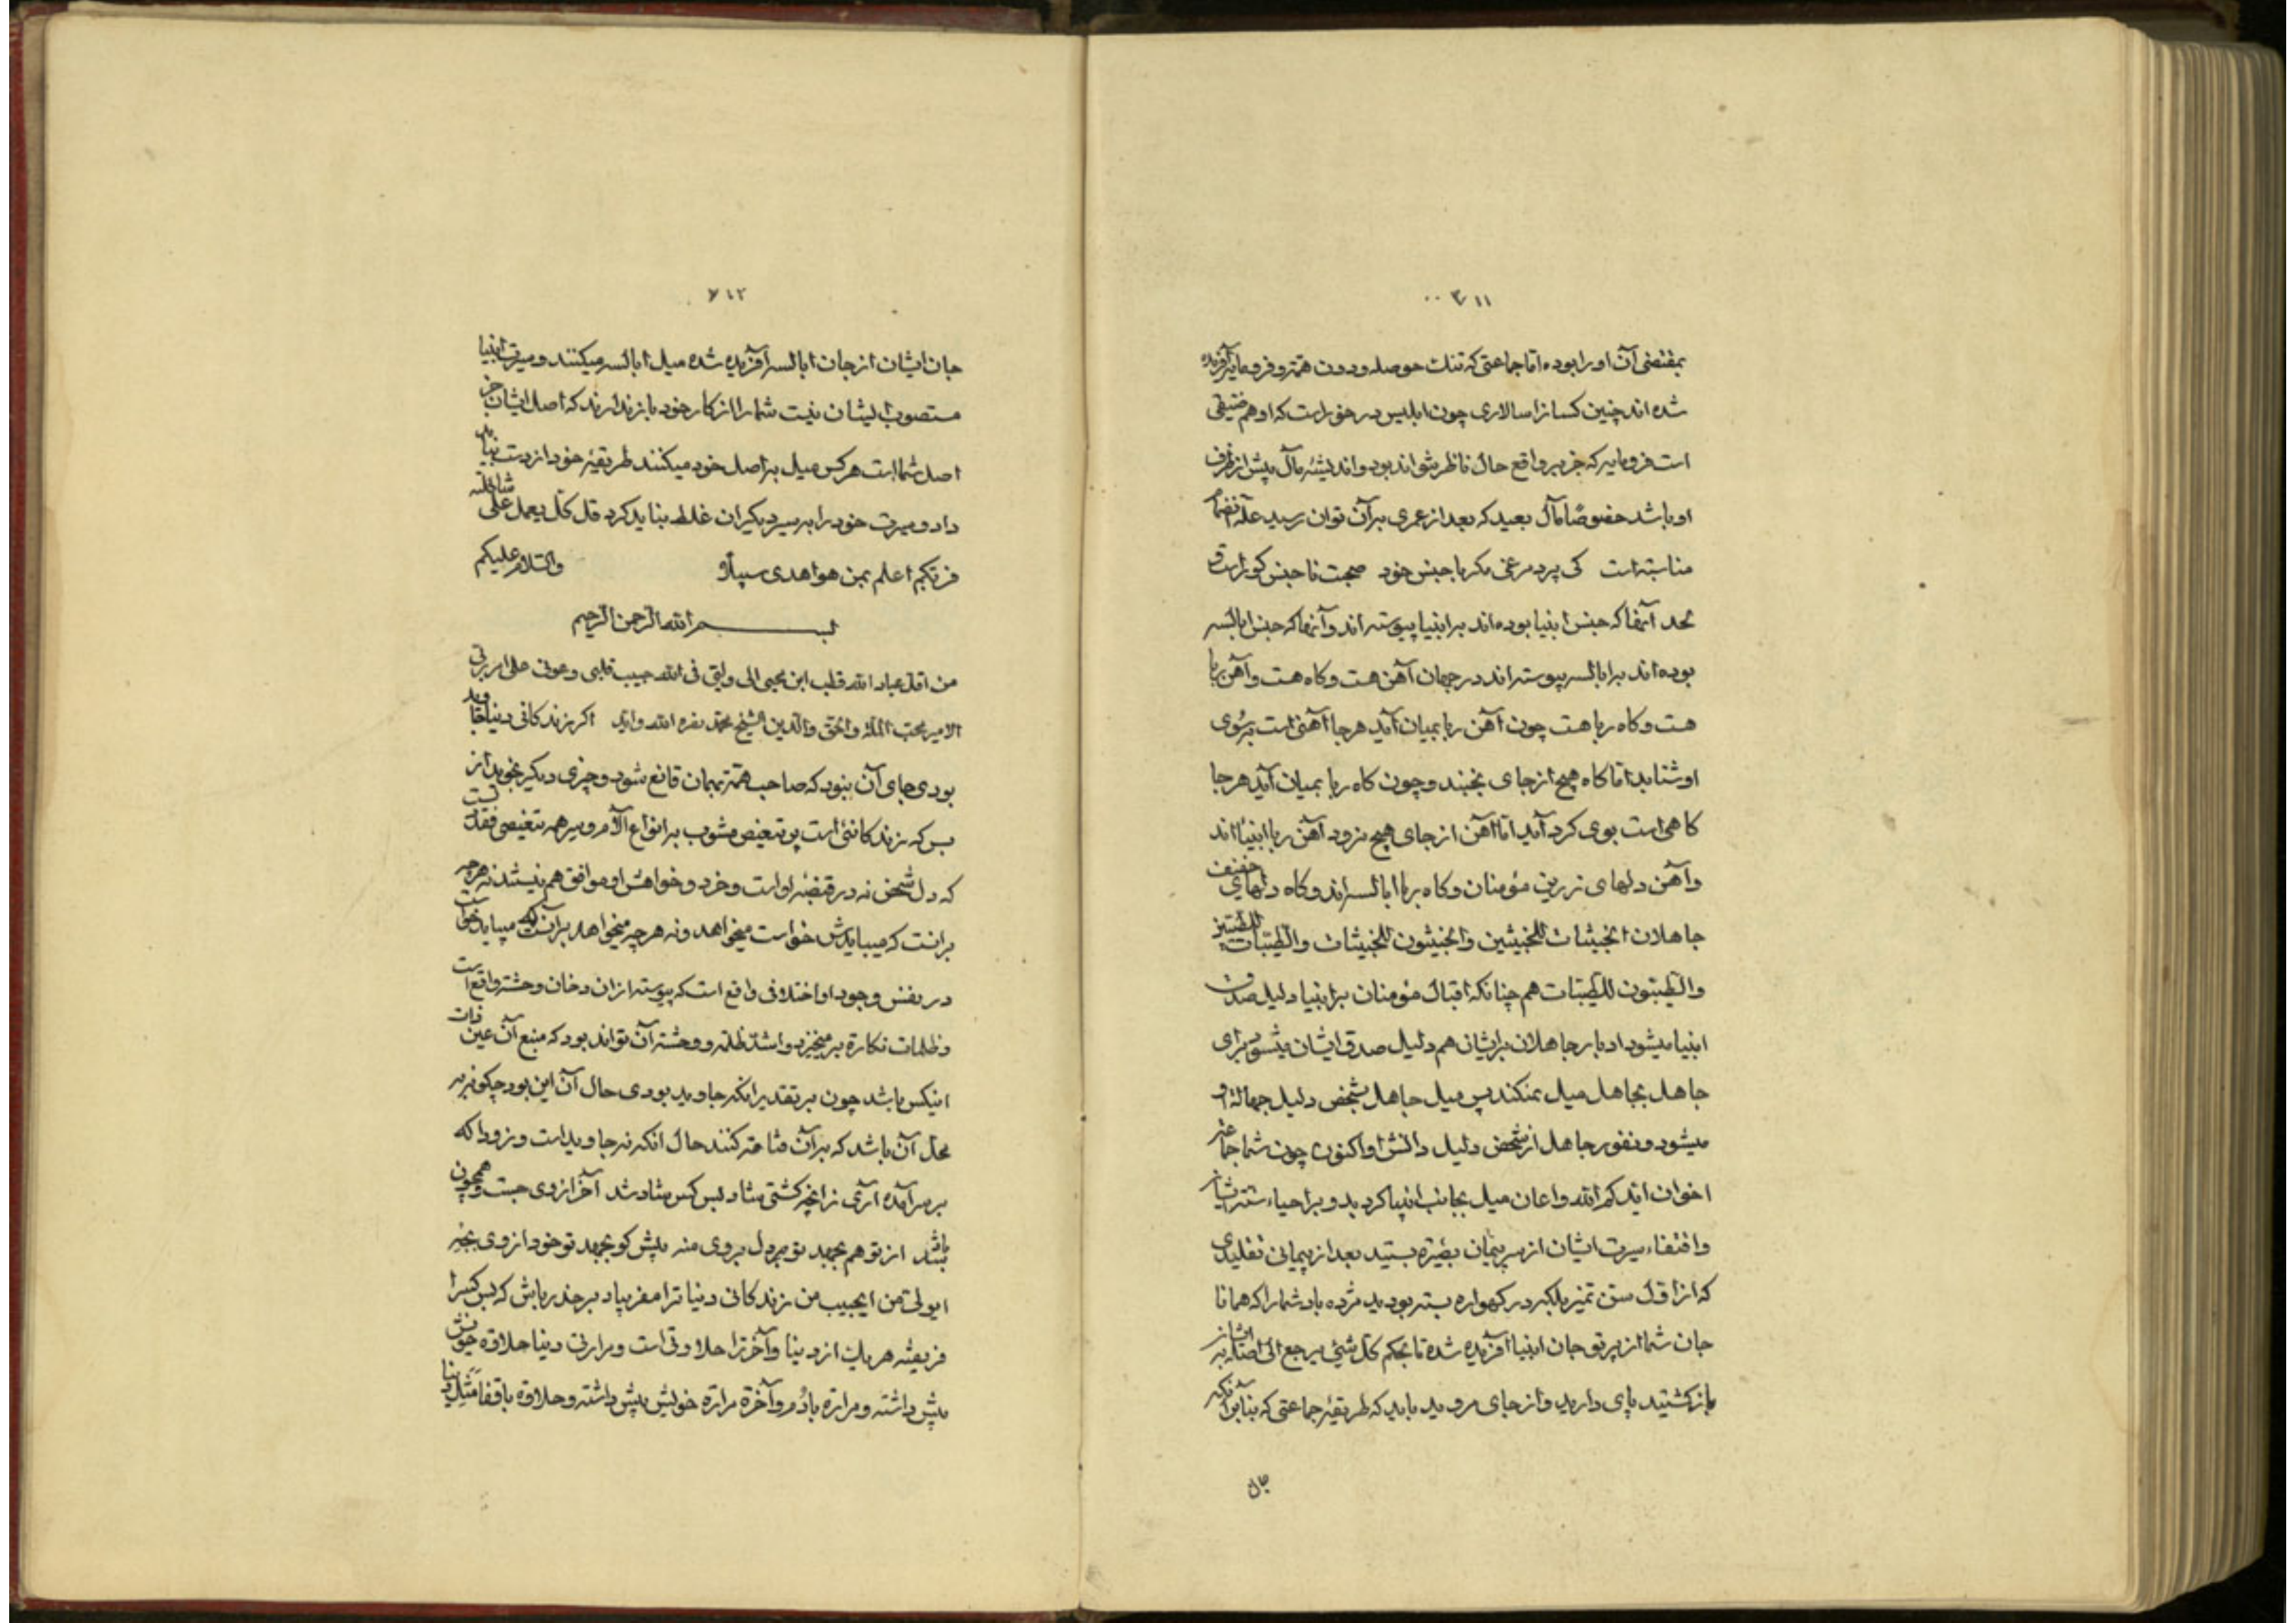 ۳۱۱
بمقتضی آن او را بوده اما جماعتی که تنک حوصله و دون همة و فرومایه آفریده
شده اند چنین کسانرا سالاری چون ابلیس در خورست که او هم
است فرومایه که جز بر واقع حال ناظر نتواند بود و اندیشهٔ مآل پیش از ظرف
او باشد خصوصًا مآل بعید که بعد از عمری بر آن توان رسید علة انضمام
مناسبة است کی پرد مرغی مکر با جنس خود صحبت ناجنس کورست و
لحد آنها که جنس انبیا بوده اند بر انبیا پیوسته اند و آنها که جنس ابالسه
بوده اند بر ابالسه پیوسته اند در جهان آهن هست و کاه هست و آهن ربا
هست و کاه ربا هست چون آهن ربا بمیان آید هر جا آهنی است بر سوی
او شتابد اما کاه هیچ از جای نجنبد و چون کاه ربا بمیان آید هر جا
کاهی است بوی کرد آید اما آهن از جای هیچ نرود آهن ربا انبیا اند
و آهن دلهای زرین مؤمنان و کاه ربا ابالسه اند و کاه دلهای خفیف
جاهلان الخبیثات للخبیثین والخبیثون للخبیثات والطیبات للطیبین
والطیبون للطیبات هم چنانکه اقبال مؤمنان بر انبیا دلیل صدق
انبیا میشود ادبار جاهلان بر ایشان هم دلیل صدق ایشان میشود برای
جاهل بجاهل میل نمیکند پس میل جاهل بشخص دلیل جهالة او
میشود و نفور جاهل از شخص دلیل دانش او اکنون چون شما جماعة
اخوان ایدکم الله و اعان میل بجانب انبیا کردید و بر احیاء سنة ایشان
و اقتفاء سیرت ایشان از سر پیمان بستید بعد از پیمانی تقلیدی
که از اول سن تمیز بلکه در کهواره بسته بودید مژده باد شما را که همانا
جان شما از پرتو جان انبیا آفریده شده تا بحکم کل شیء یرجع الی اصله بر ایشان
باز کشتید پای دارید و از جای مروید باید که طریقهٔ جماعتی که بنا بر آنکه
جان
۳۱۲
جان ایشان از جان ابالسه آفریده شده میل ابالسه میکنند و سیرت انبیا
مستصوب ایشان نیست شما را از کار خود باز ندارند که اصل ایشان جز
اصل شما است هر کس میل بر اصل خود میکنند طریقهٔ خود از دست نباید
داد و سیرت خود را بر سیر دیکران غلط نباید کرد قل کل یعمل علی شاکلته
فربکم اعلم بمن هو اهدی سبیلًا والسلام علیکم
بسم الله الرحمن الرحیم
من اقل عباد الله قطب ابن محیی الی ولیی فی الله حبیب قلبی و عونی علی امر ربی
الامیر محب الملة والحق والدین الشیخ محمد نصره الله و ایده اکر زندکانی دنیا جاوید
بودی جای آن نبود که صاحب همة بهمان قانع شود و چیزی دیکر نجوید از
بس که زندکانئی است پر تنغیص مشوب بر انواع آلام و سر همه تنغیصی فقد
که دل شخص نه در قبضهٔ اوست و خرد و خواهش او موافق هم نیستند نه هر چه
بر آنست که میبایدش خواست میخواهد و نه هر چه میخواهد بر آنست که میباید خواست
در نفس وجود او اختلافی واقع است که پیوسته از آن دخان وحشة واقع است
و ظلمات نکارة بر میخیزد و اشد ظلمة و وحشة آن تواند بود که منبع آن عین ذات
اینکس باشد چون بر تقدیر آنکه جاوید بودی حال آن این بود چکونه بر
محل آن باشد که بر آن قناعة کنند حال آنکه نه جاوید است و زودا که
بر سر آمده آری زانچه کشتی شاد بس کس شاد شد آخر از وی جست و همچون
باد شد از تو هم بجهد تو دل بر وی منه پیش کو بجهد تو خود از وی بجه
ای ولی من ای حبیب من زندکانی دنیا ترا مفریباد بر حذر باش که بس کس را
فریفته هر یک از دنیا و آخرترا حلاوتی است و مرارتی دنیا حلاوة خویش
پیش داشته و مرارة با دُم و آخرة مرارة خویش پیش داشته و حلاوة با قفا مثل دنیا